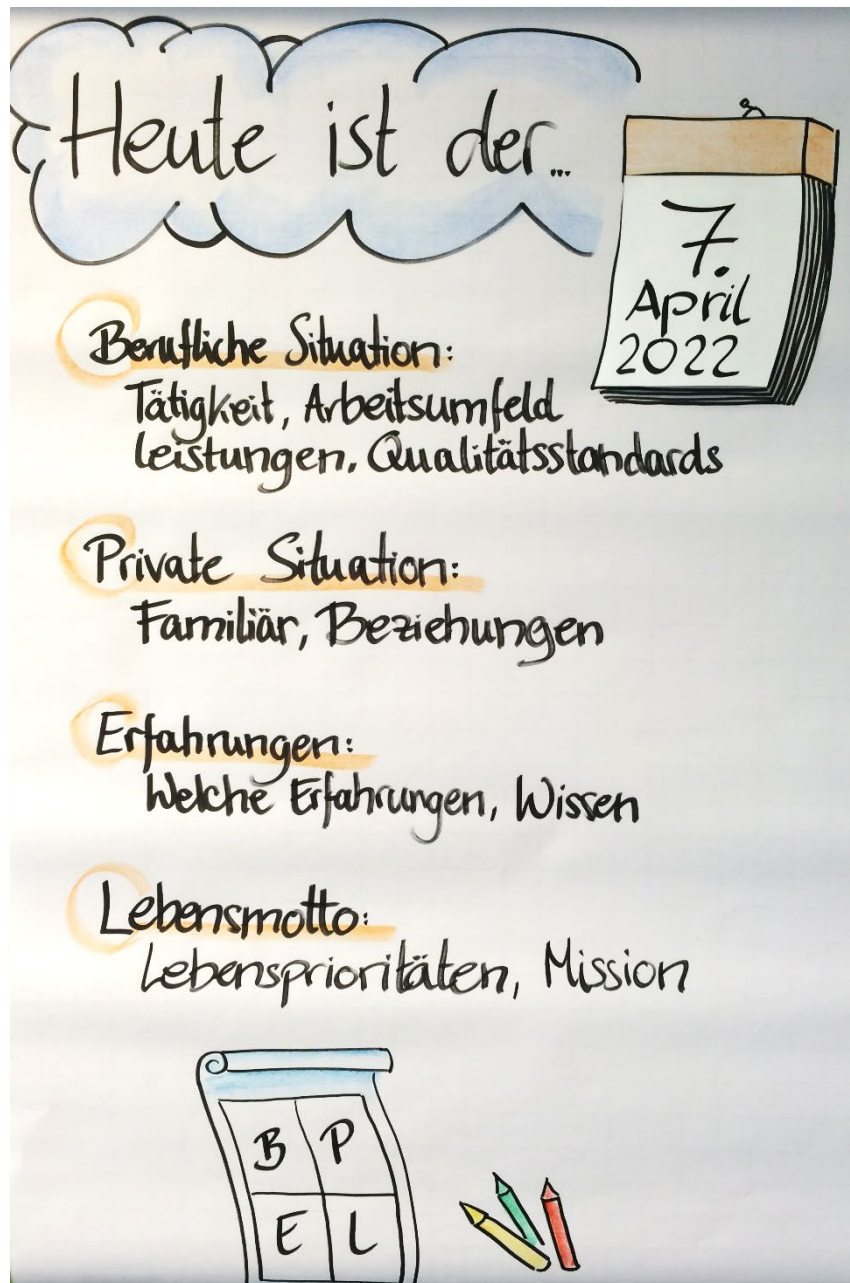 Heute ist der...
7.
April
2022
Berufliche Situation:
Tätigkeit, Arbeitsumfeld
Leistungen, Qualitätsstandards
Private Situation:
Familiär, Beziehungen
Erfahrungen:
Welche Erfahrungen, Wissen
Lebensmotto:
Lebensprioritäten, Mission
B P
E L